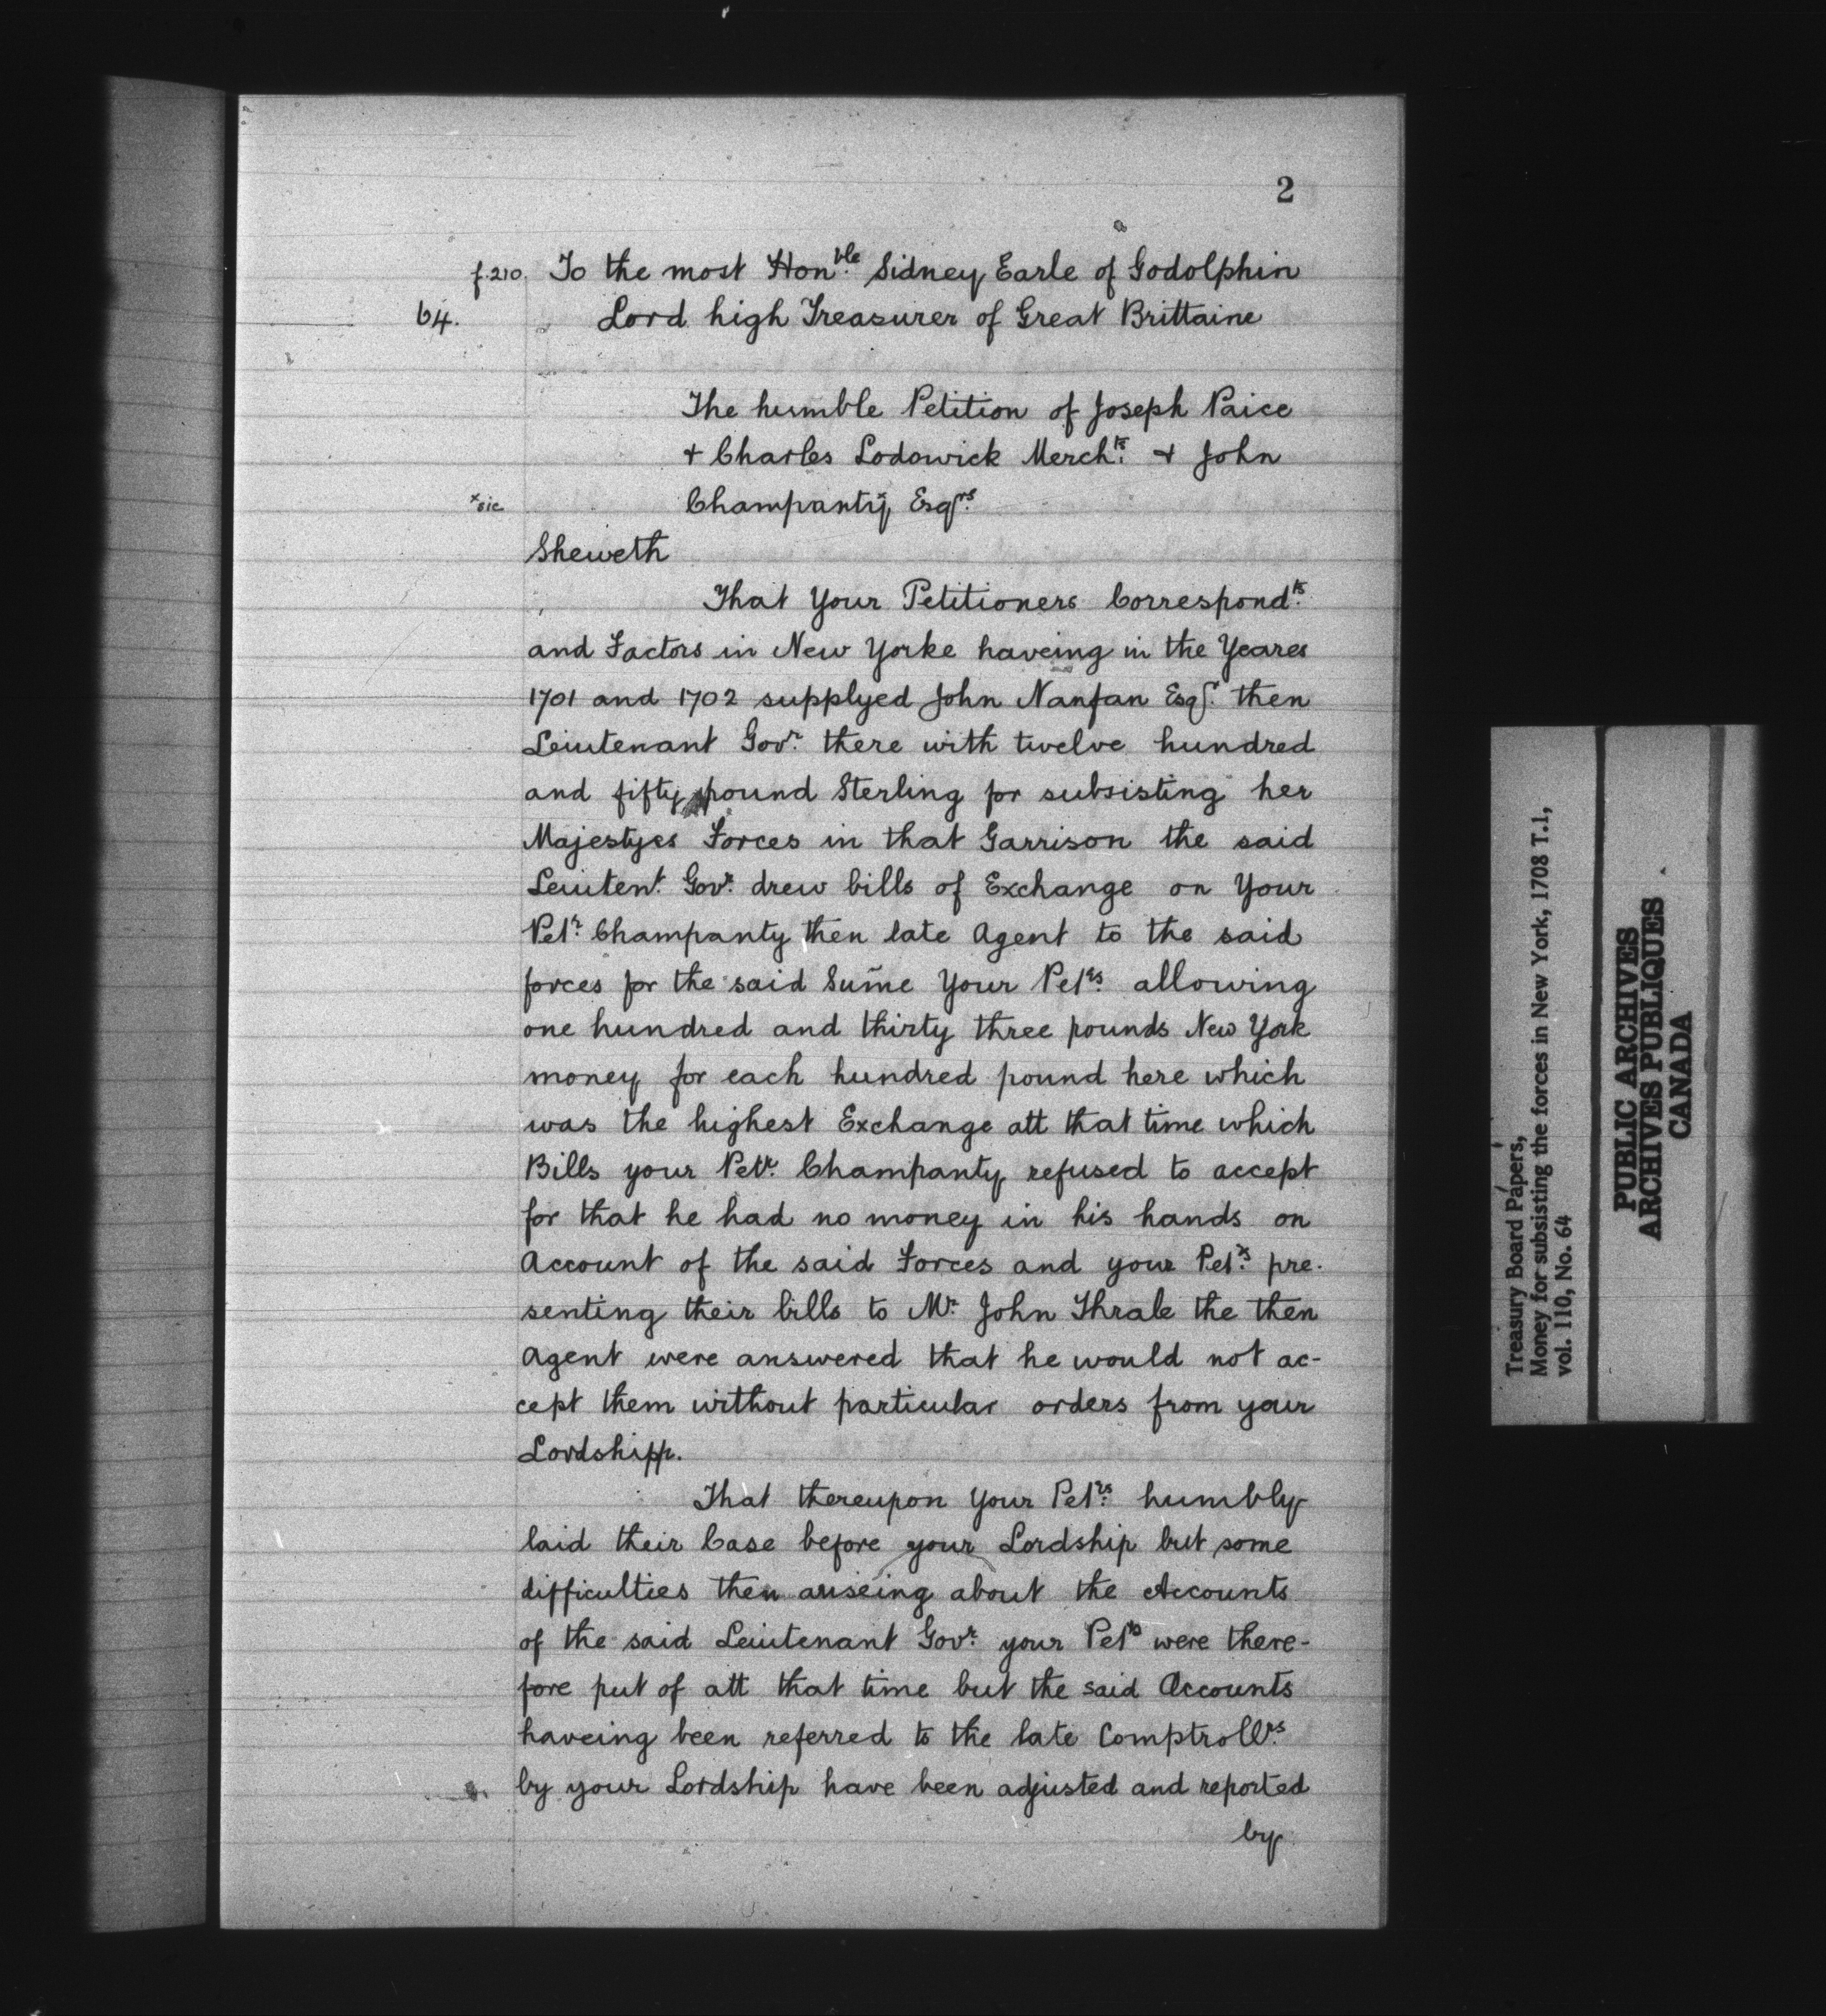 2
f.210. To the most Hon^ble. Sidney Earle of Godolphin
64. Lord high Treasurer of Great Brittaine
The humble Petition of Joseph Paice
+ Charles Lodowick Merch^ts. + John
×sic Champantÿ Esq^rs.
Sheweth
That Your Petitioners Correspond^ts.
and Factors in New Yorke haveing in the Yeares
1701 and 1702 supplyed John Nanfan Esq^r. then
Leiutenant Gov^r. there with twelve hundred
and fifty pound Sterling for subsisting her
Majestyes Forces in that Garrison the said
Leiuten^t. Gov^r. drew bills of Exchange on Your
Pet^r. Champanty then late Agent to the said
forces for the said Sum̃e Your Pet^rs. allowing
one hundred and thirty three pounds New York
money for each hundred pound here which
was the highest Exchange att that time which
Bills your Pet^r. Champanty refused to accept
for that he had no money in his hands on
Account of the said Forces and your Pet^rs. pre-
senting their bills to M^r. John Thrale the then
Agent were answered that he would not ac-
cept them without particular orders from your
Lordshipp.
That thereupon Your Pet^rs. humbly
laid their Case before your Lordship but some
difficulties then ariseing about the Accounts
of the said Leiutenant Gov^r. your Pet^rs were there-
fore put of att that time but the said Accounts
haveing been referred to the late Comptroll^rs.
by your Lordship have been adjusted and reported
by
Treasury Board Papers,
Money for subsisting the forces in New York, 1708 T.1,
vol. 110, No. 64
PUBLIC ARCHIVES
ARCHIVES PUBLIQUES
CANADA